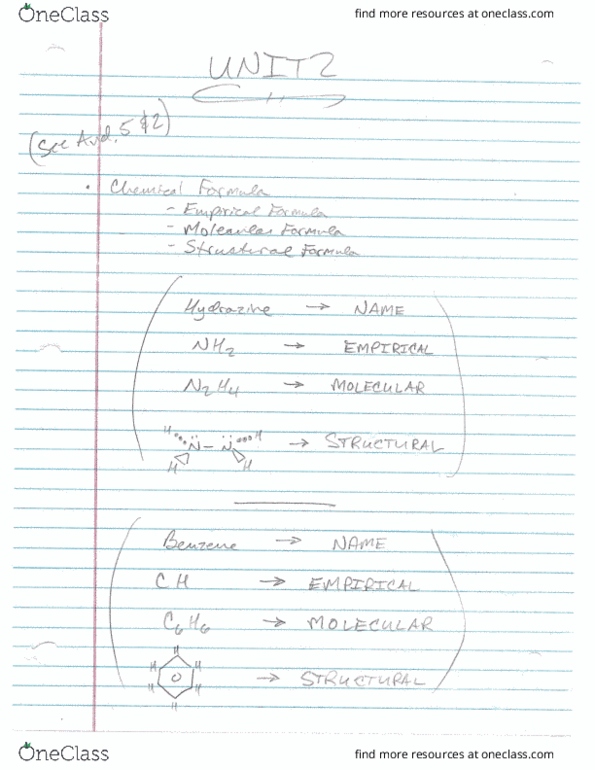 OneClass
find more resources at oneclass.com
UNIT 2
(See And. 5 & 2)
• Chemical Formula
- Empirical Formula
- Molecular Formula
- Structural Formula
Hydrazine → NAME
NH2 → EMPIRICAL
N2H4 → MOLECULAR
H N - N H → STRUCTURAL
H H
Benzene → NAME
CH → EMPIRICAL
C6H6 → MOLECULAR
H
H H
→ STRUCTURAL
H H
H
OneClass
find more resources at oneclass.com